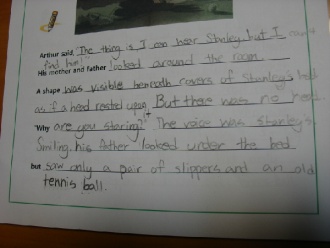 Arthur said, "The thing is I can hear Stanley but I can't
find him!"
His mother and father looked around the room.
A shape was visible beneath covers of Stanley's bed
as if a head rested upon. But there was no head.
"Why are you staring?" The voice was Stanley's.
Smiling, his father looked under the bed
but saw only a pair of slippers and an old
tennis ball.